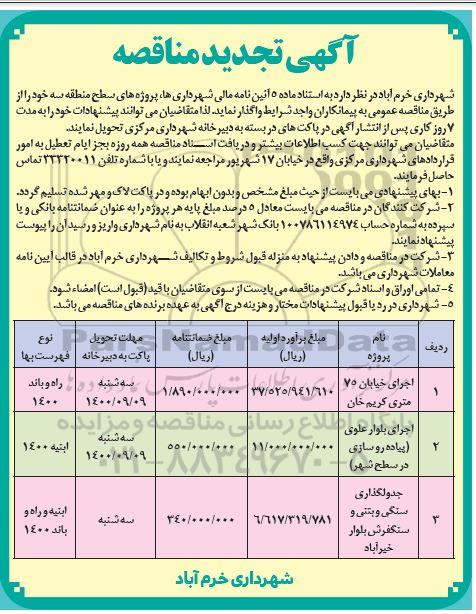 آگهی تجدید مناقصه
شهرداری خرم آباد در نظر دارد به استناد ماده ۵ آئین نامه مالی شهرداری ها، پروژه های سطح منطقه سه خود را از
طریق مناقصه عمومی به پیمانکاران واجد شرایط واگذار نماید. لذا متقاضیان می توانند پیشنهادات خود را به مدت
۷ روز کاری پس از انتشار آگهی در پاکت های در بسته به دبیرخانه شهرداری مرکزی تحویل نمایند.
متقاضیان می توانند جهت کسب اطلاعات بیشتر و دریافت اسناد مناقصه همه روزه بجز ایام تعطیل به امور
قراردادهای شهرداری مرکزی واقع در خیابان ۱۷ شهریور مراجعه نمایند و یا با شماره تلفن ۳۳۳۲۰۰۱۱ تماس
حاصل فرمایند.
۱- بهای پیشنهادی می بایست از حیث مبلغ مشخص و بدون ابهام بوده و در پاکت لاک و مهر شده تسلیم گردد.
۲- شرکت کنندگان در مناقصه می بایست معادل ۵ درصد مبلغ پایه هر پروژه را به عنوان ضمانتنامه بانکی و یا
سپرده به شماره حساب ۱۰۰۷۸۶۱۱۴۹۷۴ بانک شهر شعبه انقلاب به نام شهرداری واریز و رسید آن را پیوست
پیشنهاد نمایند.
۳- شرکت در مناقصه و دادن پیشنهاد به منزله قبول شروط و تکالیف شهرداری خرم آباد در قالب آیین نامه
معاملات شهرداری می باشد.
۴- تمامی اوراق و اسناد شرکت در مناقصه می بایست از سوی متقاضیان با قید (قبول است) امضاء شود.
۵- شهرداری در رد یا قبول پیشنهادات مختار و هزینه درج آگهی به عهده برنده های مناقصه می باشد.
ردیف | نام پروژه | مبلغ برآورد اولیه (ریال) | مبلغ ضمانتنامه (ریال) | مهلت تحویل پاکت به دبیرخانه | نوع فهرست بها
۱ | اجرای خیابان ۷۵ متری کریم خان | ۳۷/۵۲۵/۹۴۱/۶۱۰ | ۱/۸۹۰/۰۰۰/۰۰۰ | سه شنبه ۱۴۰۰/۰۹/۰۹ | راه و باند ۱۴۰۰
۲ | اجرای بلوار علوی (پیاده رو سازی در سطح شهر) | ۱۱/۰۰۰/۰۰۰/۰۰۰ | ۵۵۰/۰۰۰/۰۰۰ | سه شنبه ۱۴۰۰/۰۹/۰۹ | ابنیه ۱۴۰۰
۳ | جدولگذاری سنگی و بتنی و سنگفرش بلوار خیرآباد | ۶/۶۱۷/۳۱۹/۷۸۱ | ۳۴۰/۰۰۰/۰۰۰ | سه شنبه | ابنیه و راه و باند ۱۴۰۰
شهرداری خرم آباد
ParsNamadData
پایگاه اطلاع رسانی مناقصه و مزایده
۰۲۱-۸۸۳۴۹۶۷۰-۵